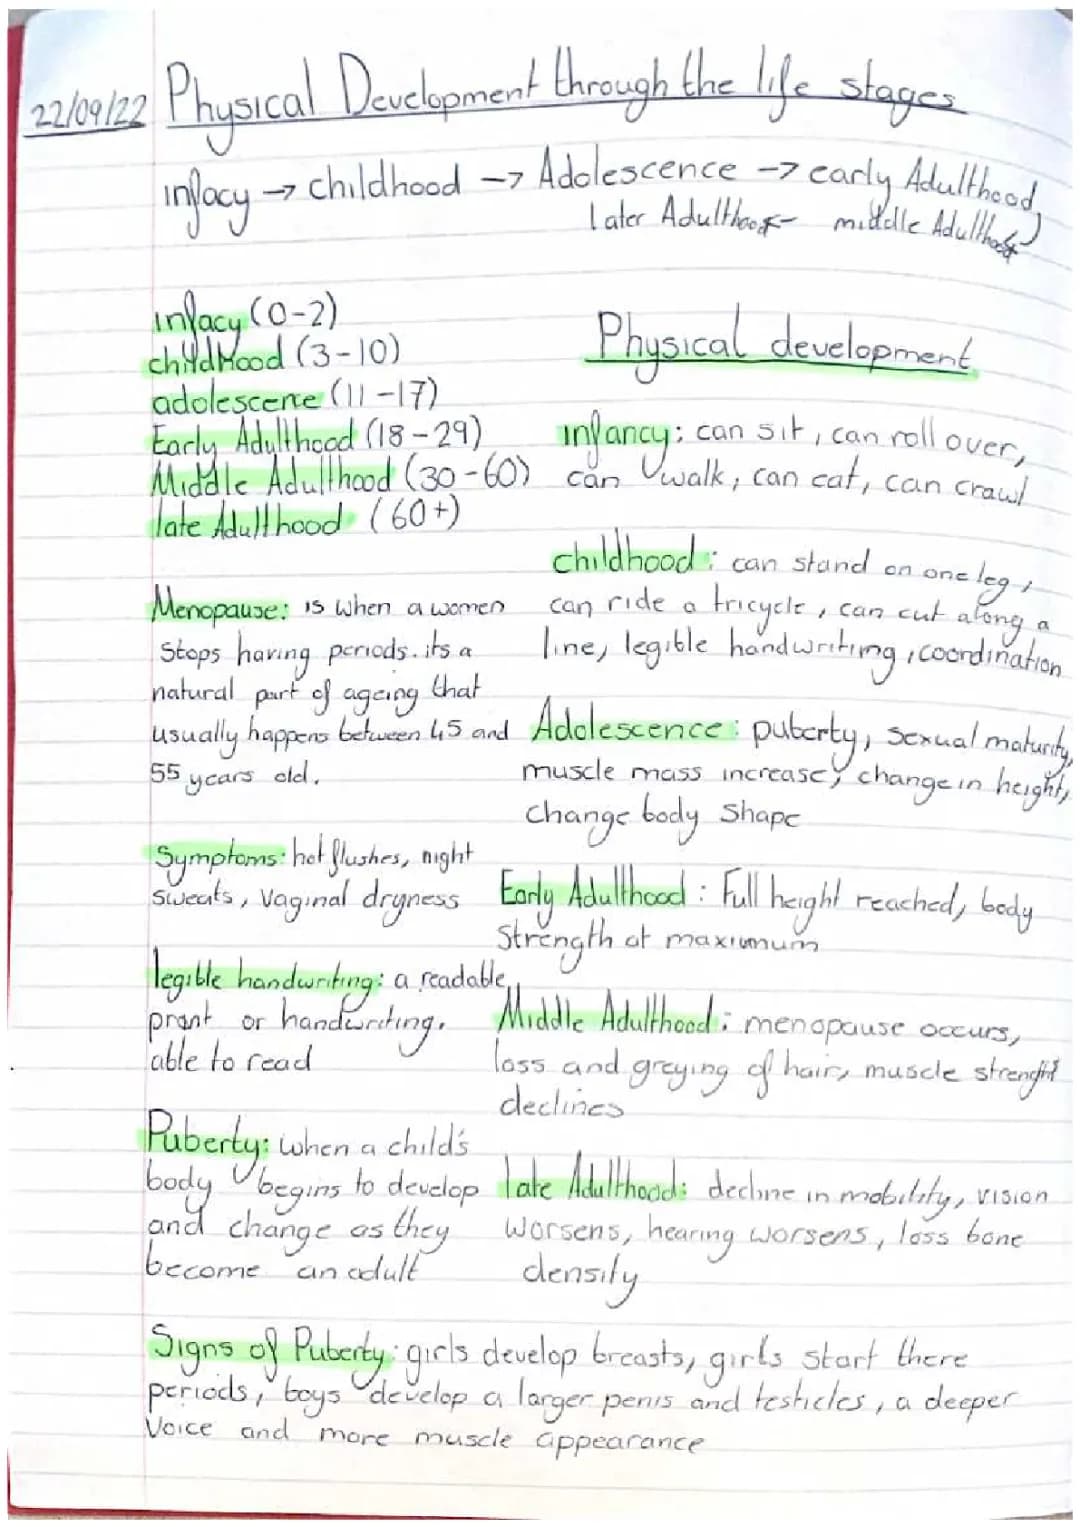 22/09/22 Physical Development through the life stages
inflacy → childhood → Adolescence → early Adulthood,
later Adulthood ← middle Adulthood
inflacy (0-2)
childhood (3-10)
adolescene (11-17)
Early Adulthood (18-29)
Middle Adulthood (30-60)
late Adulthood (60+)
Menopause: is when a women
stops having periods. its a
natural part of ageing that
usually happens between 45 and
55 years old.
Symptoms: hot flushes, night
sweats, vaginal dryness
legible handwriting: a readable
prant or handwriting.
able to read
Puberty: when a child's
body begins to develop
and change as they
become an adult
Physical development
infancy: can sit, can roll over,
can walk, can eat, can crawl
childhood: can stand on one leg,
can ride a tricycle, can cut along a
line, legible handwriting, coordination
Adolescence: puberty, sexual maturity,
muscle mass increase, change in height,
change body shape
Early Adulthood: Full height reached, body
strength at maximum
Middle Adulthood: menopause occurs,
loss and greying of hair, muscle strenght
declines
late Adulthood: decline in mobility, vision
worsens, hearing worsens, loss bone
density
Signs of Puberty: girls develop breasts, girls start there
periods, boys develop a larger penis and testicles, a deeper
voice and more muscle appearance